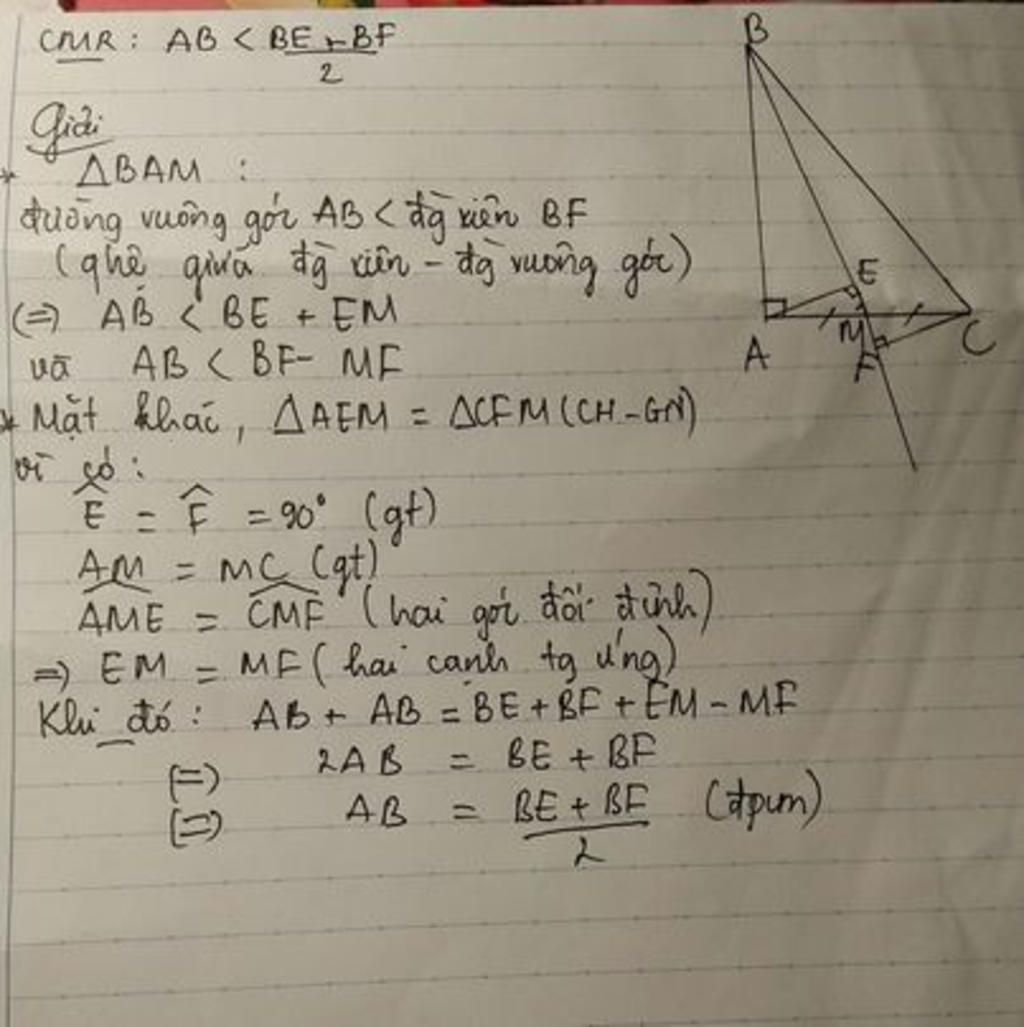 CMR: AB < BE + BF / 2
Giải
* ΔBAM :
đường vuông góc AB < đg xiên BF
(qhệ giữa đg xiên - đg vuông góc)
(=) AB < BE + EM
và AB < BF - MF
* Mặt khác, ΔAEM = ΔCFM (CH-GN)
vì có:
Ê = F̂ = 90° (gt)
AM = MC (gt)
AME = CMF (hai góc đối đỉnh)
=> EM = MF (hai cạnh tg ứng)
Khi đó: AB + AB = BE + BF + EM - MF
(=) 2AB = BE + BF
(=) AB = BE + BF / 2 (đpcm)
B
E
A
M
F
C